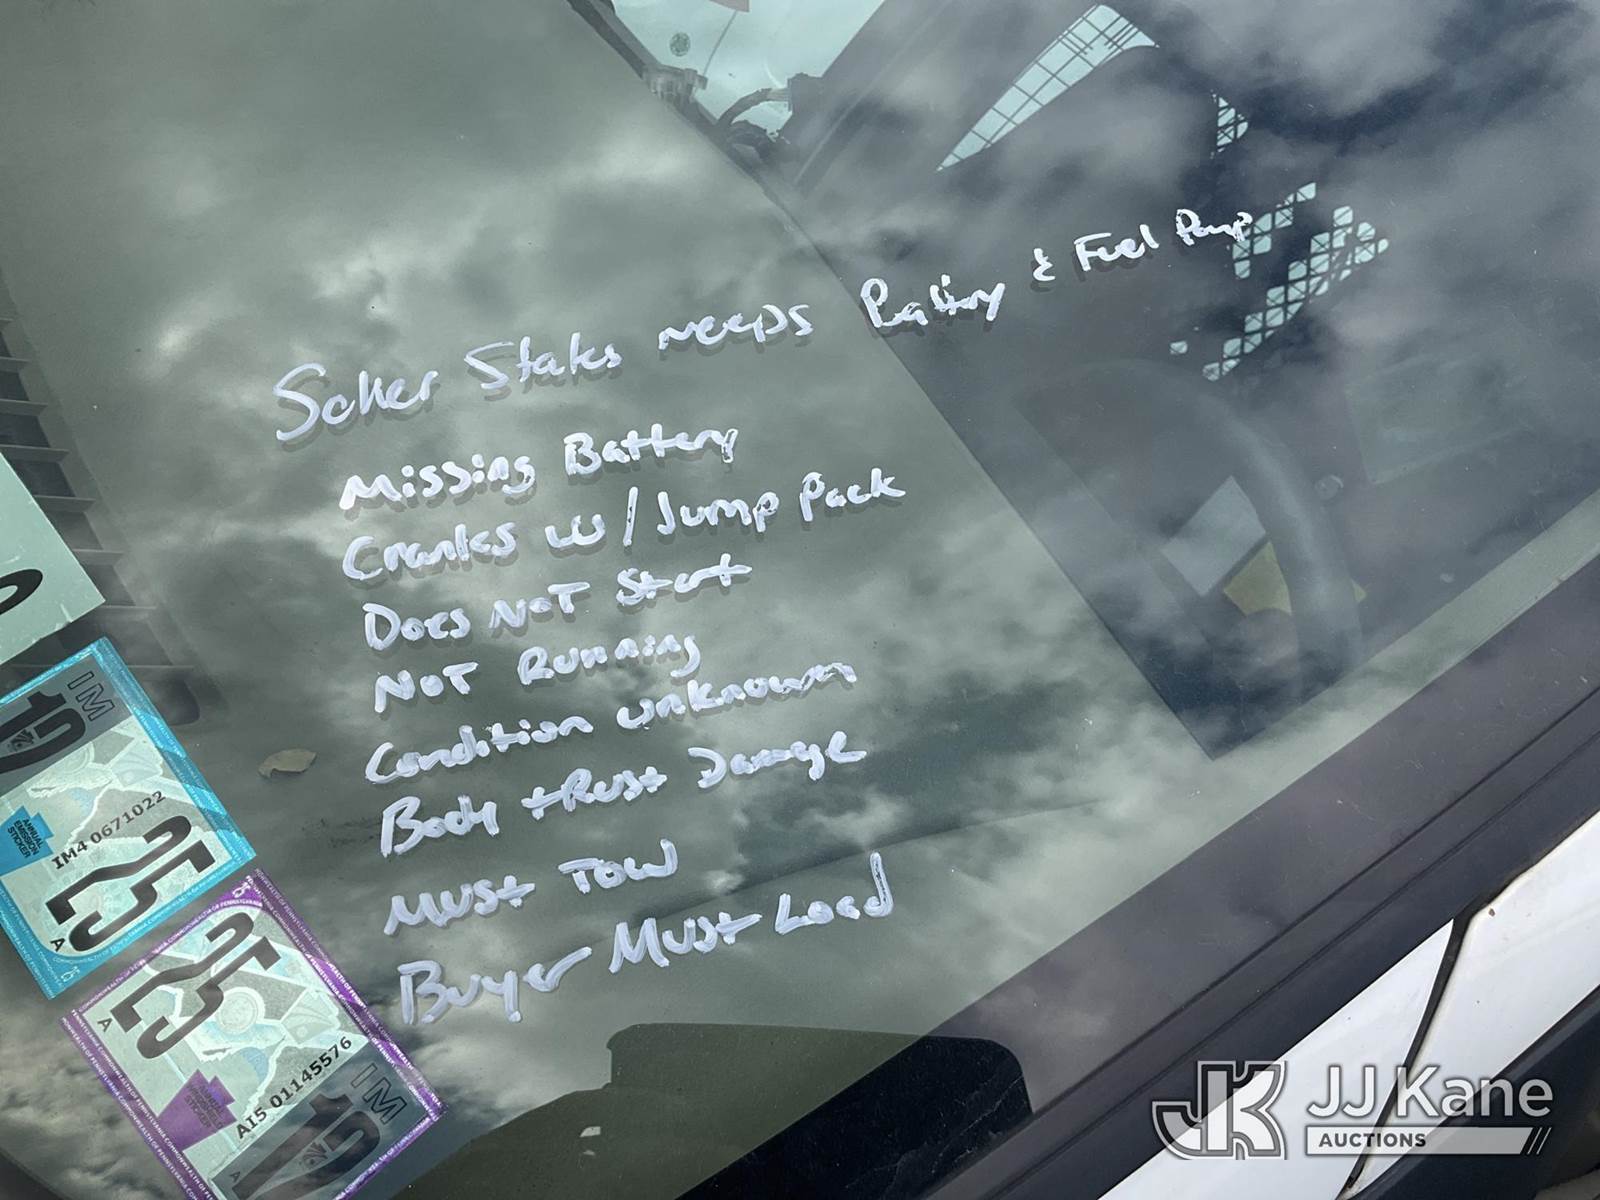 Seller States needs Battery & Fuel Pump
Missing Battery
Cranks w/ Jump Pack
Does Not Start
Not Running
Condition unknown
Body + Rust Damage
Must Tow
Buyer Must Load
IM
12
ANNUAL
EMISSION
STICKER
IM4 0671022
25
A
25
A
AI5 01145576
IM
12
JJ Kane
AUCTIONS